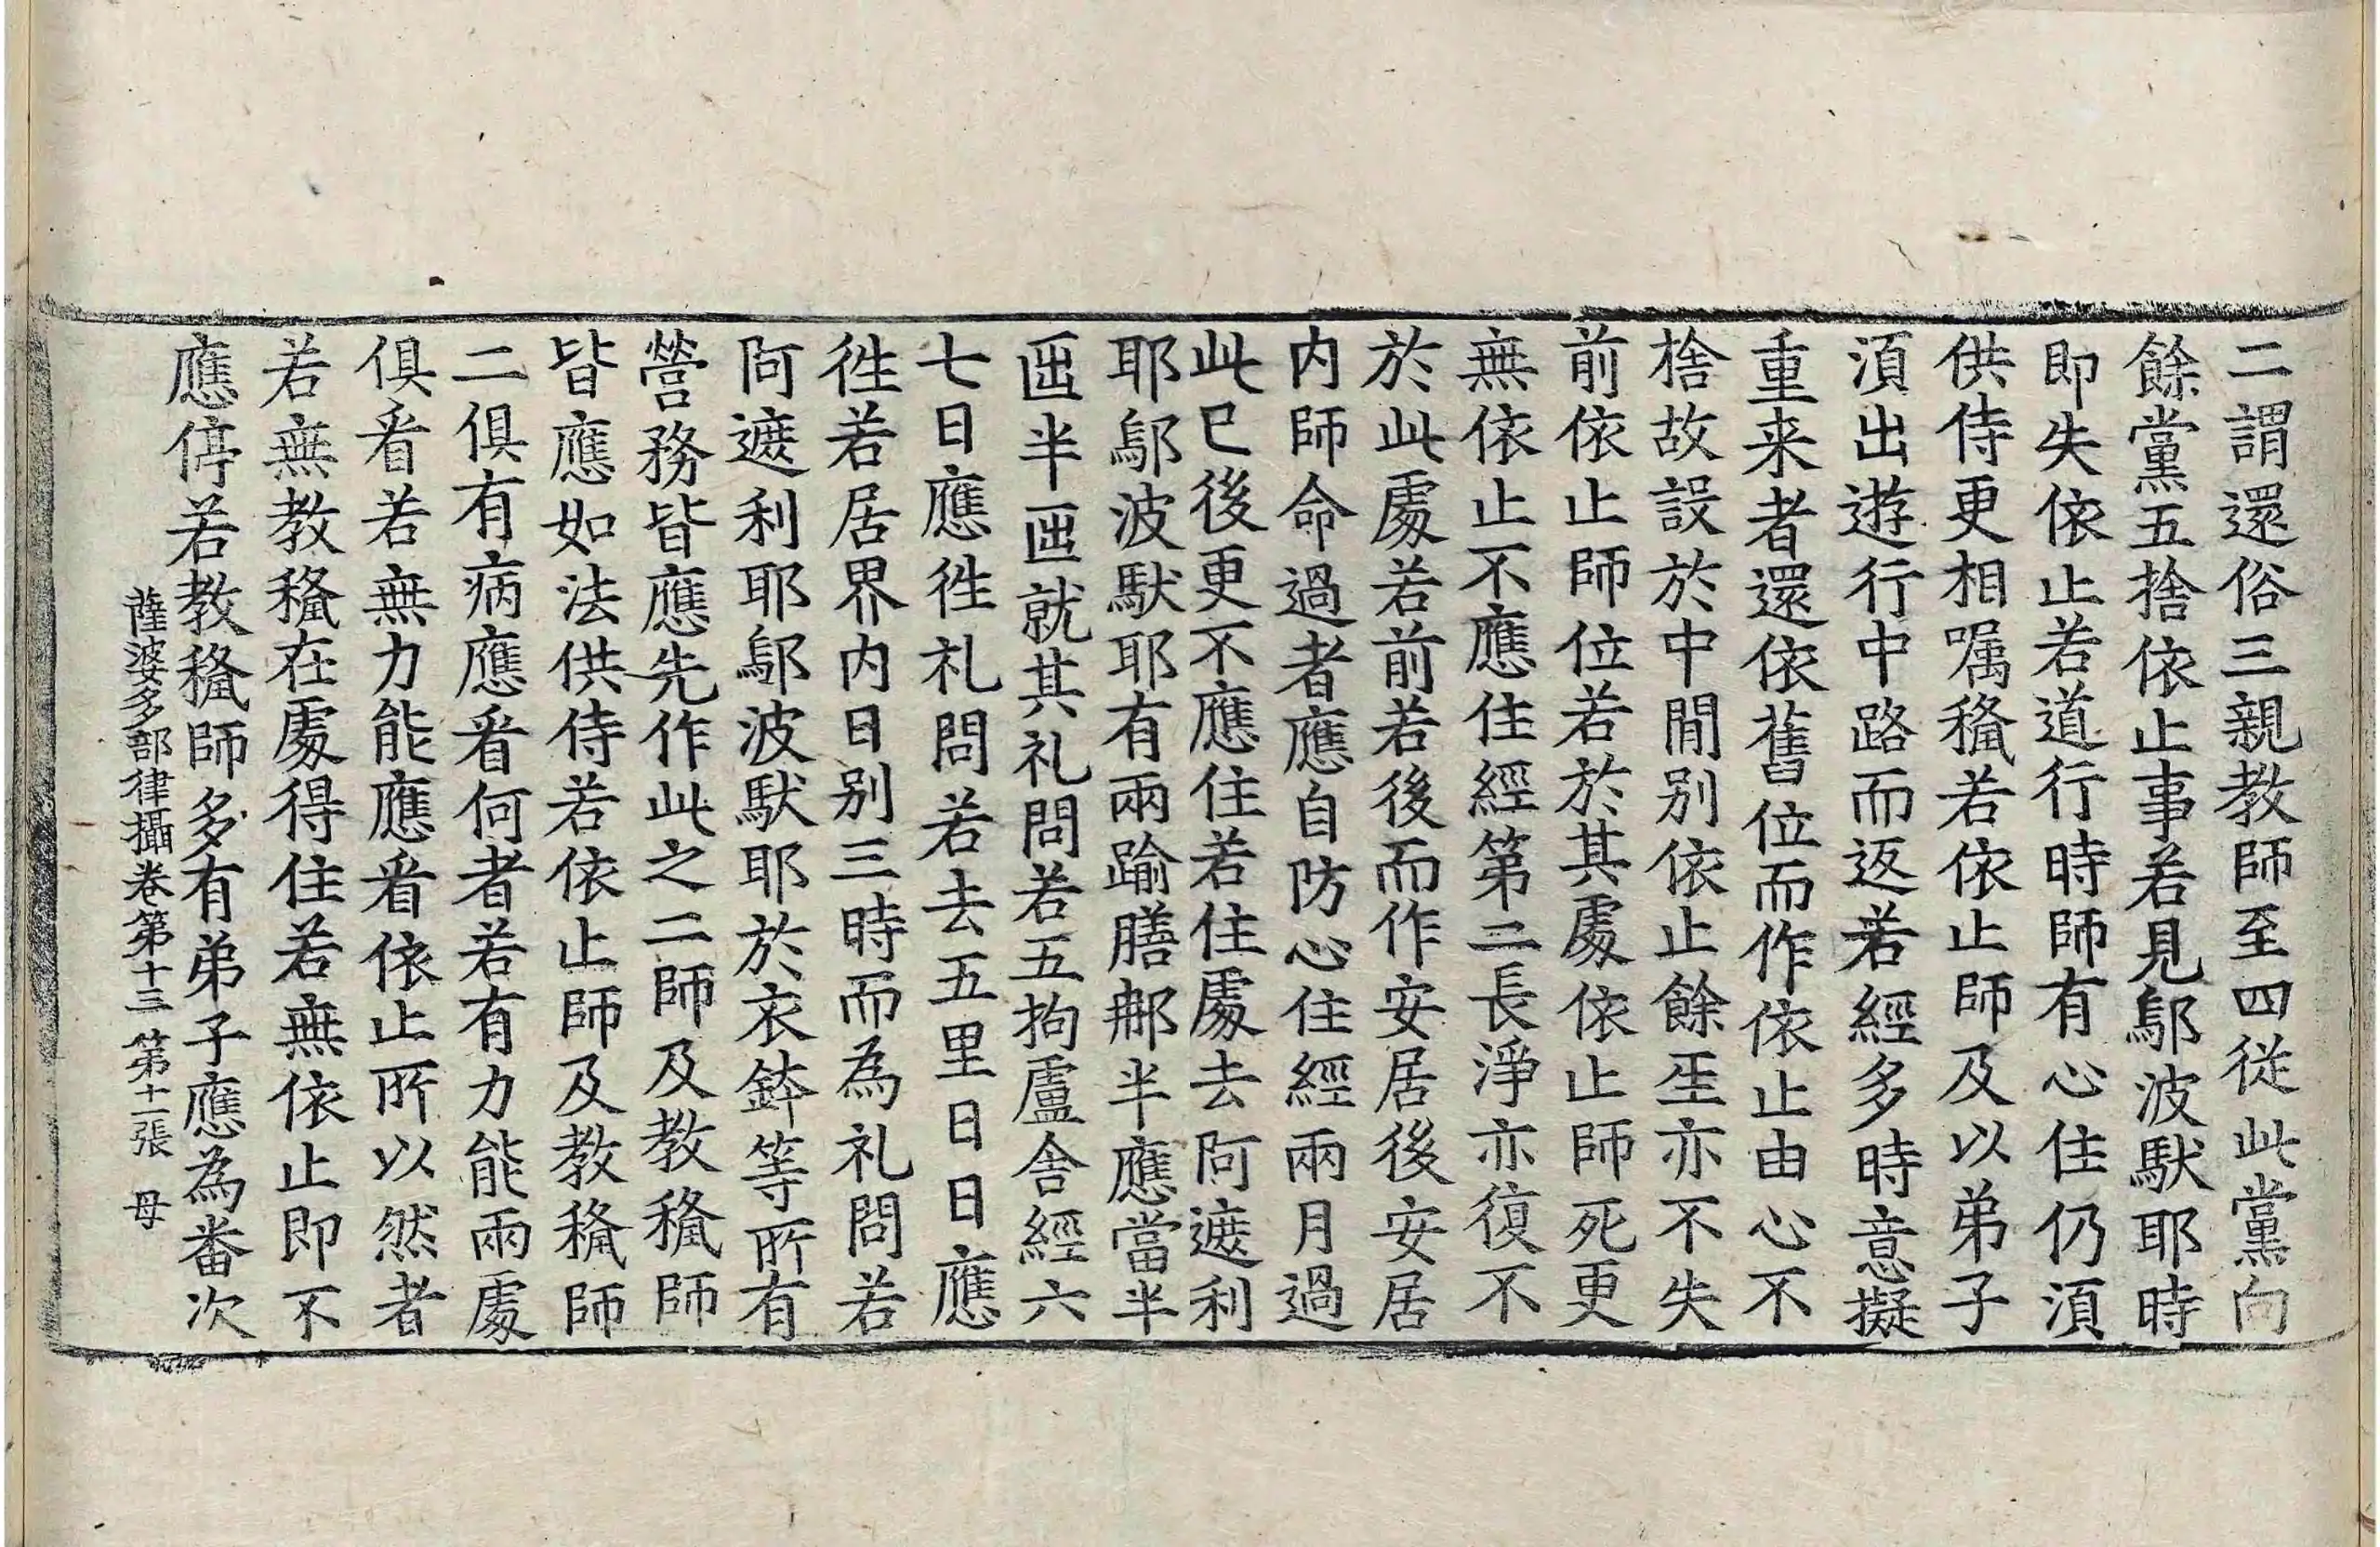 二謂還俗三親教師至四從此黨向
餘黨五捨依止事若見鄔波馱耶時
即失依止若道行時師有心住仍湏
供侍更相嘱𥡳若依止師及以弟子
湏出遊行中路而返若經多時意擬
重来者還依舊位而作依止由心不
捨故設於中閒别依止餘𤯔亦不失
前依止師位若於其處依止師死更
無依止不應住經第二長淨亦復不
於此處若前若後而作安居後安居
内師命過者應自防心住經兩月過
此已後更不應住若住處去阿遮利
耶鄔波馱耶有兩踰膳那半應當半
迊半迊就其礼問若五拘盧舍經六
七日應徃礼問若去五里日日應
徃若居界内日别三時而為礼問若
阿遮利耶鄔波馱耶於衣鉢等所有
營務皆應先作此之二師及教𥡳師
皆應如法供侍若依止師及教𥡳師
二俱有病應看何者若有力能兩處
俱看若無力能應看依止所以然者
若無教𥡳在處得住若無依止即不
應停若教𥡳師多有弟子應為番次
薩婆多部律攝卷第十三 第十一張 母